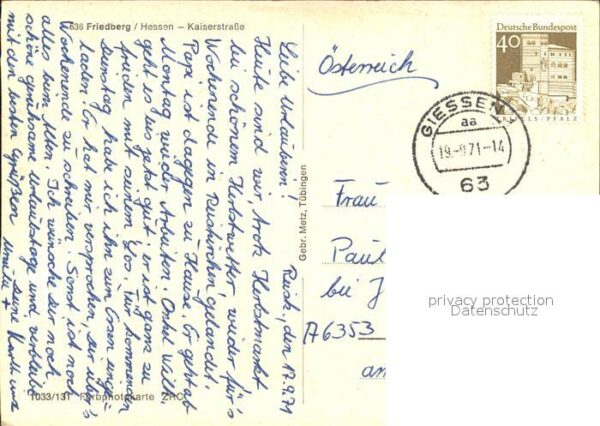 636 Friedberg / Hessen – Kaiserstraße
Liebe Urlauberin!
den 17.9.71
Heute sind wir, trotz Herbstmarkt
bei schönem Herbstwetter wieder für's
Wochenende in Reiskirchen gelandet.
Papi ist dagegen zu Hause. Er geht ab
Montag wieder Arbeiten. Onkel Willi
geht es bis jetzt gut, er ist ganz zu
frieden mit seinem Los. Für kommenden
Dienstag habe ich ihn zum Essen einge-
laden. Er hat mir versprochen, Dir über's
Wochenende zu schreiben. Sonst ist noch
alles beim Alten. Ich wünsche Dir noch
schöne geruhsame Urlaubstage und verbleibe
mit den besten Grüßen Deine
+
1033/131 Farbphotokarte ZRC
Gebr. Metz, Tübingen
Österreich
Deutsche Bundespost
40
TRIFELS/PFALZ
GIESSEN
aa
19.-9.71-14
63
Frau
Paul
bei J
A6353
an
privacy protection
Datenschutz